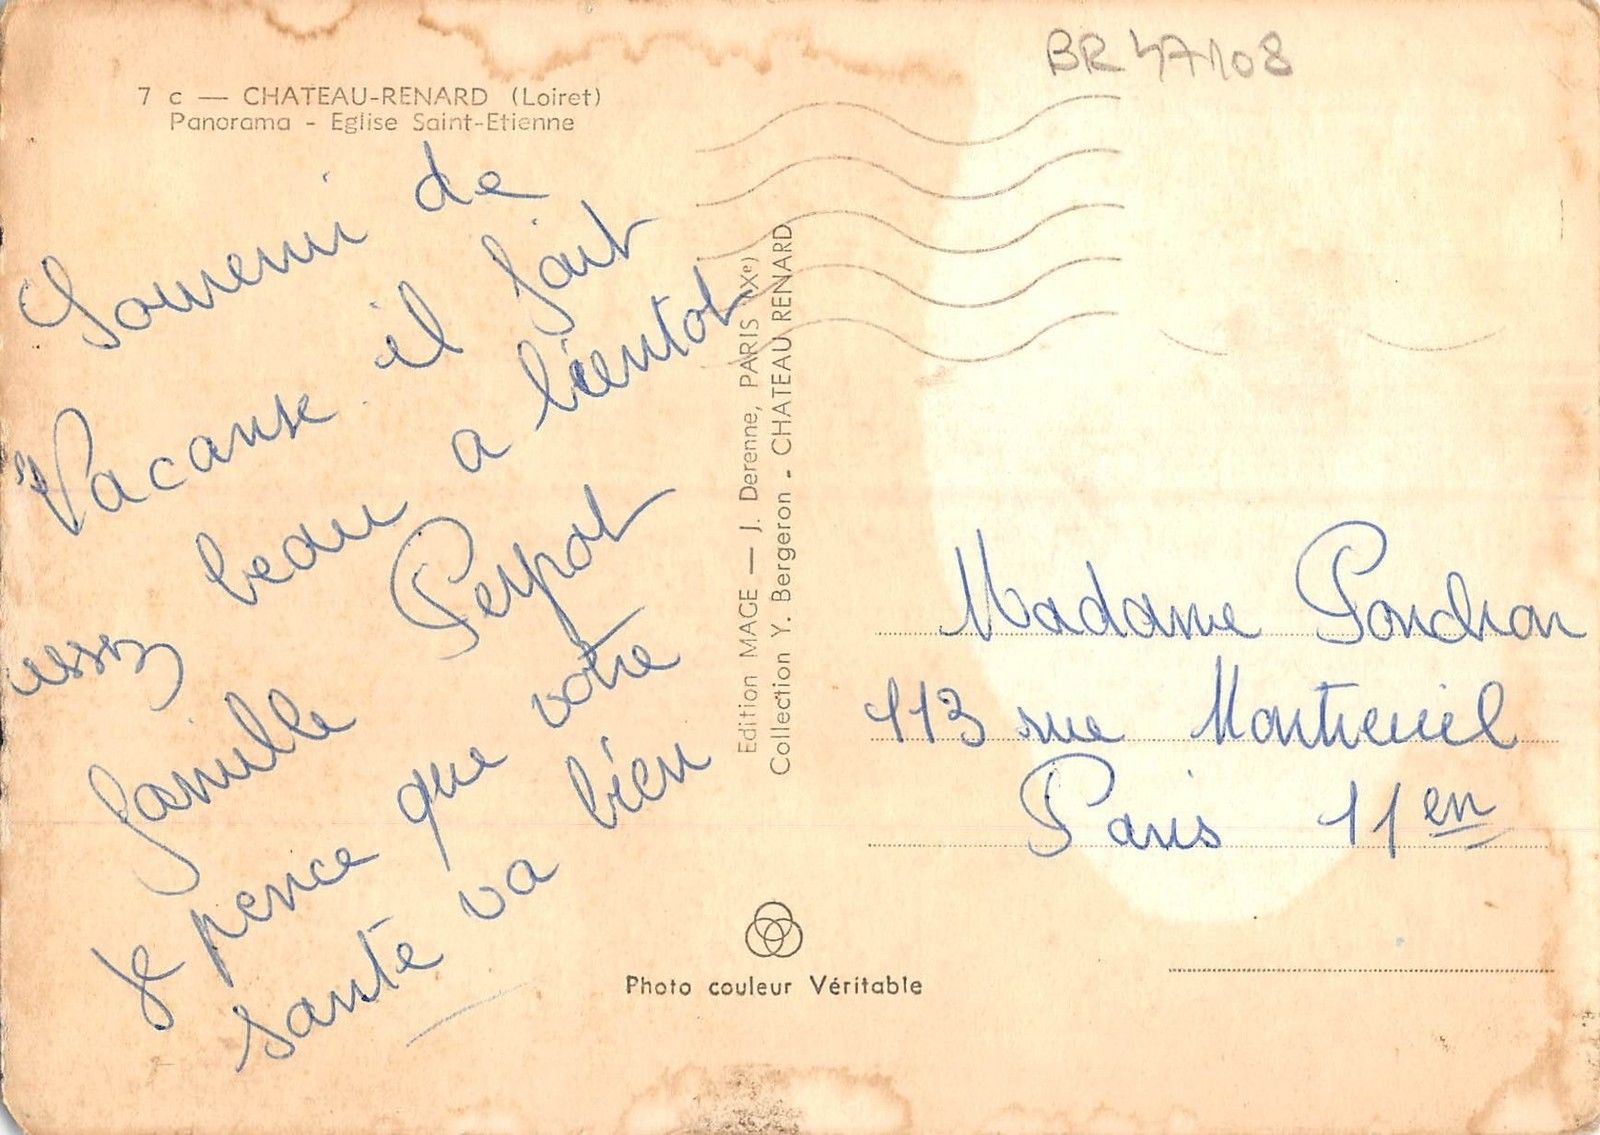 BR 47108
7 c — CHATEAU-RENARD (Loiret)
Panorama - Eglise Saint-Etienne
Souvenir de
Vacanse il fait
assez beau a bientot
famille Perpot
je pence que votre
santé va bien
Edition MAGE — J. Derenne, PARIS (Xe)
Collection Y. Bergeron - CHATEAU RENARD
Madame Pondron
113 rue Montreuil
Paris 11 en
Photo couleur Véritable